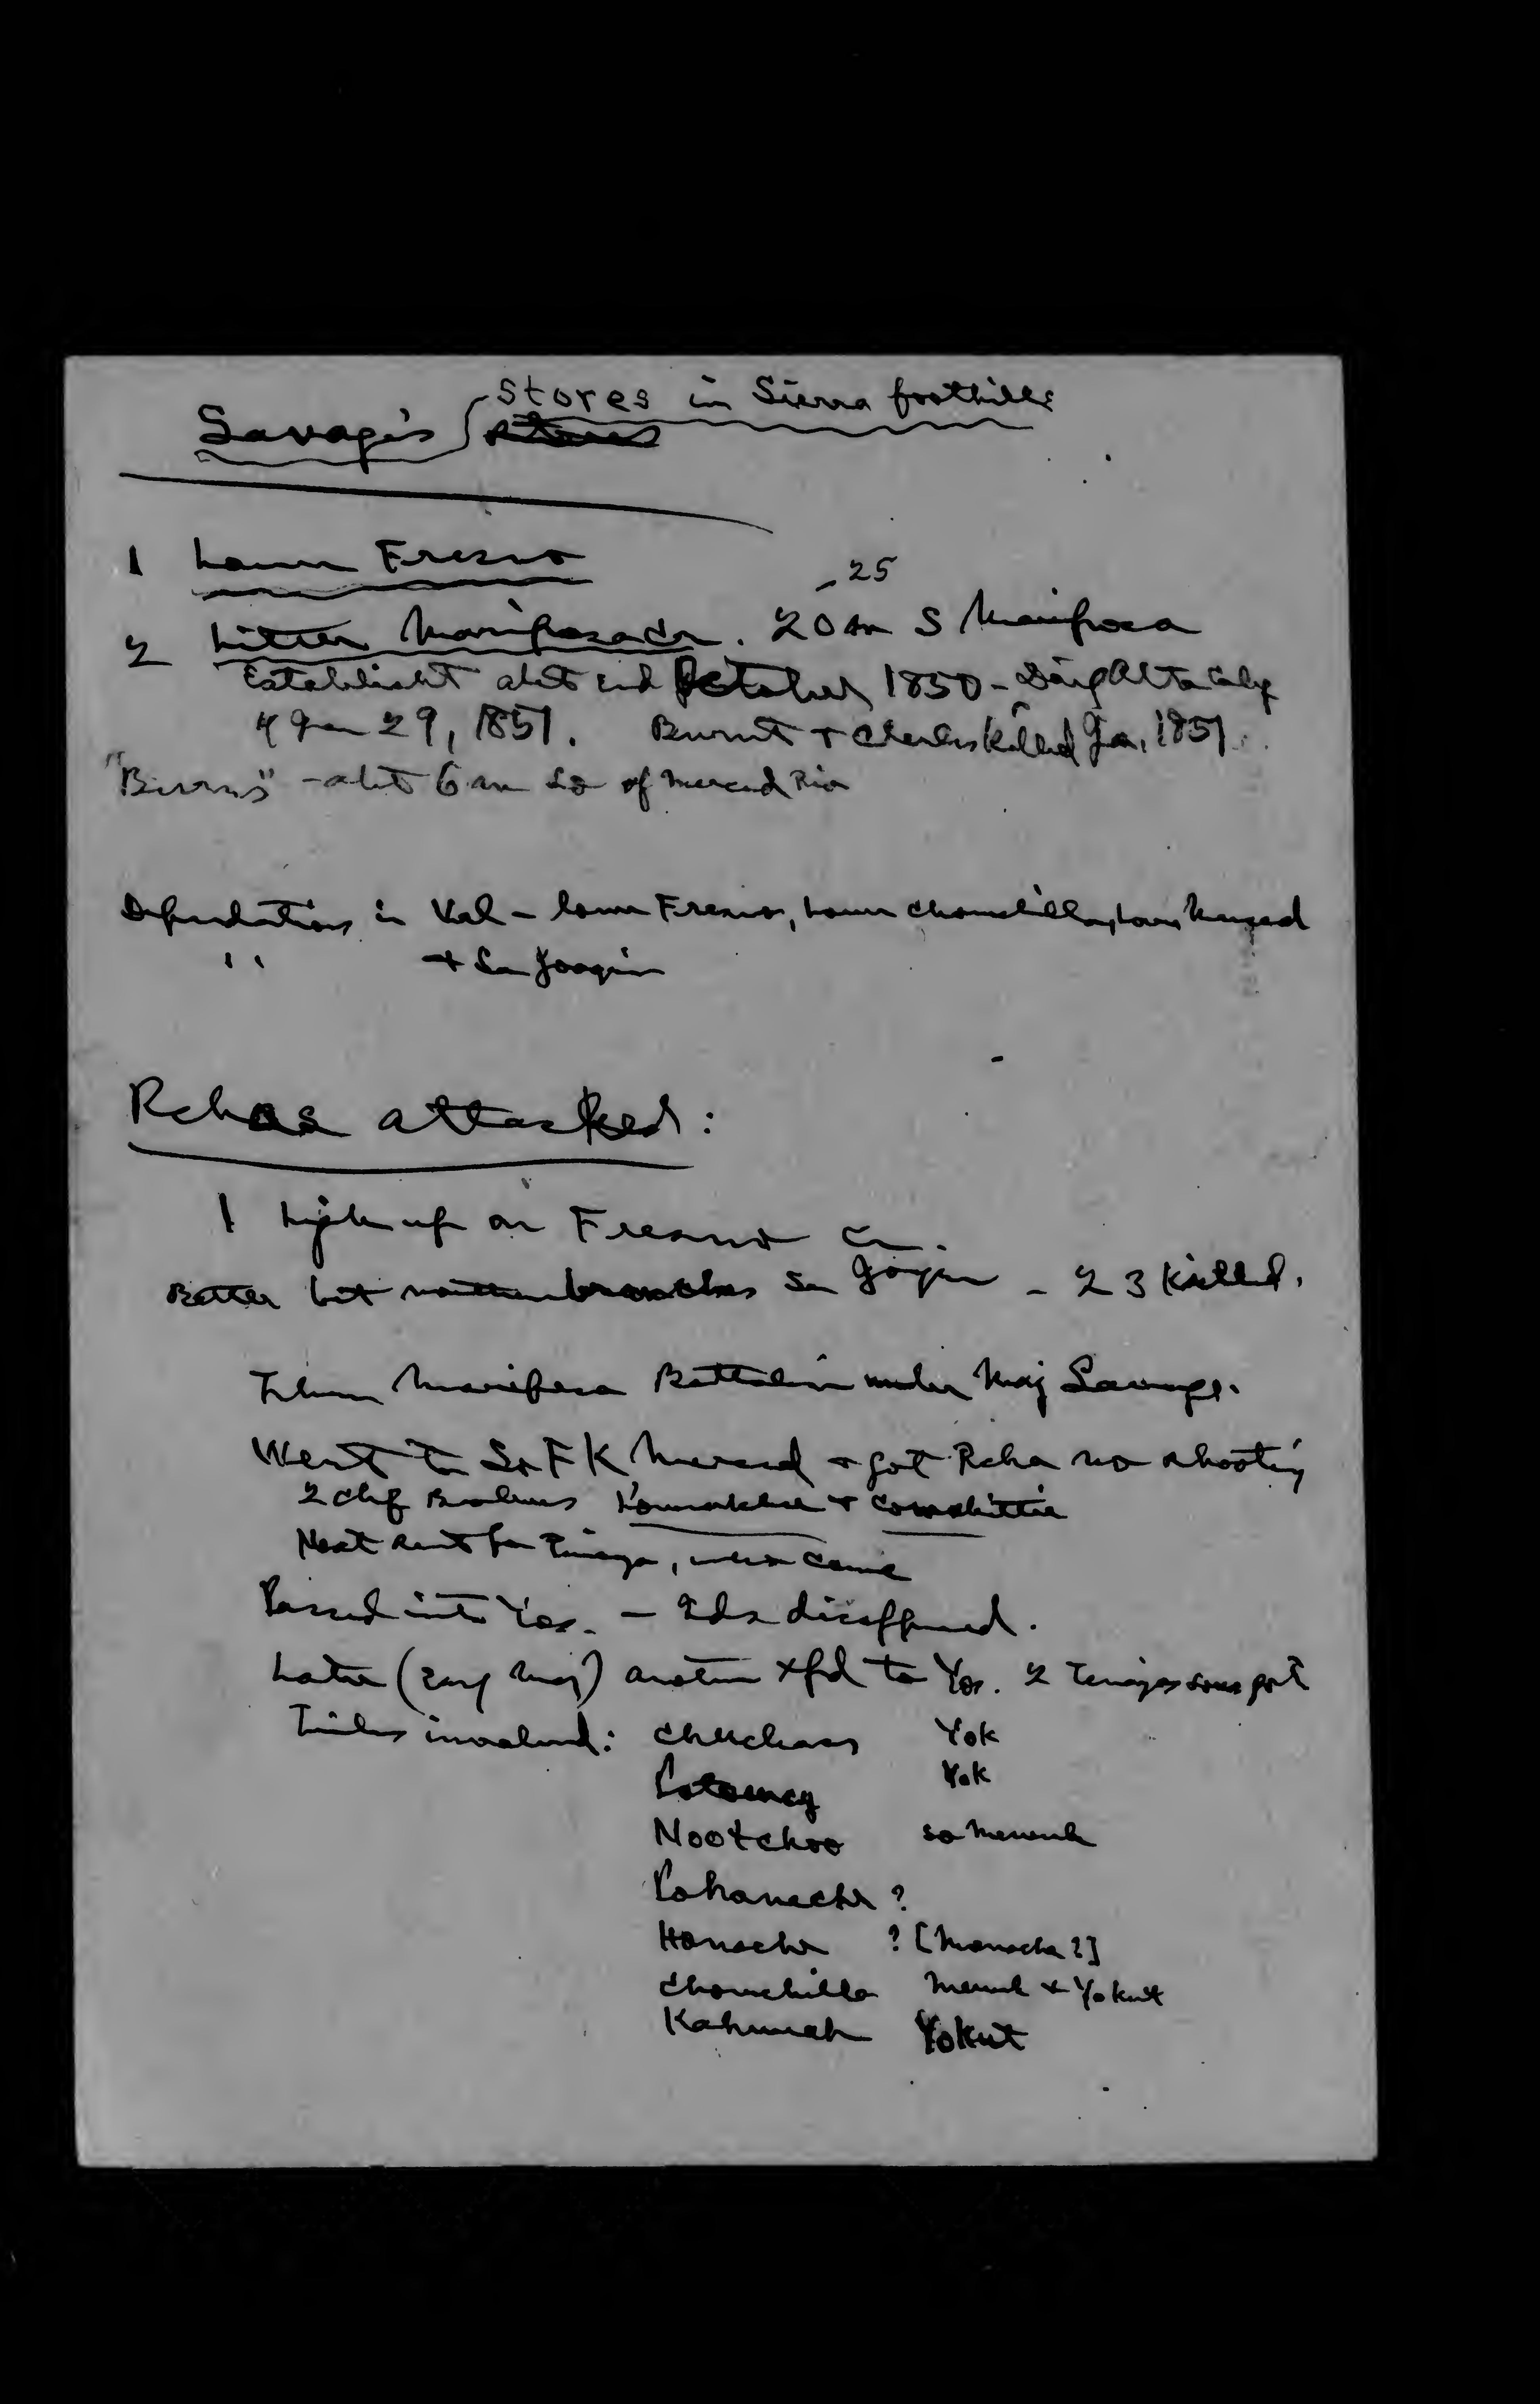 Savage's stores in Sierra foothills
1 Lower Fresno
-25
2 Little Mariposa Cr. 20 m S Mariposa
Establisht abt end October 1850 - Daily Alta Calif
of Jan 29, 1851. Burnt + clerks killed Jan, 1851.
"Burns" - abt 6 m So of Merced Riv
Depredations in Val - lower Fresno, lower Chowchilla, low Merced
" + San Joaquin
Rchas attacked:
1 High up on Fresno Cr.
Better bet northern branches San Joaquin - 23 killed.
Then Mariposa Battalion under Maj Savage.
Went to So. FK Merced + got Rcha no shooting
2 chf
Next sent for Tenaya, who came
Passed into Yos. - Inds disappeared.
Later (early May) another xpd to Yos. 2 Tenayas sons got
Tribes involved: Chukchas Yok
Potoency Yok
Nootchoo so Mewuk
Pohoneche ?
Honache ? [Monache?]
Chowchilla Mewuk + Yokut
Kahweah Yokut